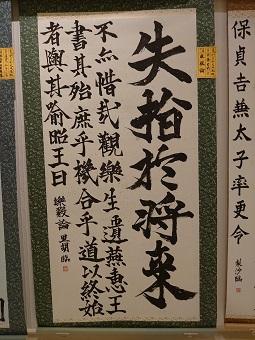 保貞吉兼太子率更令
失指於将来
不亦惜哉觀樂生遺燕惠王
書其殆庶乎機合乎道以終始
者與其喻昭王曰
樂毅論 臨